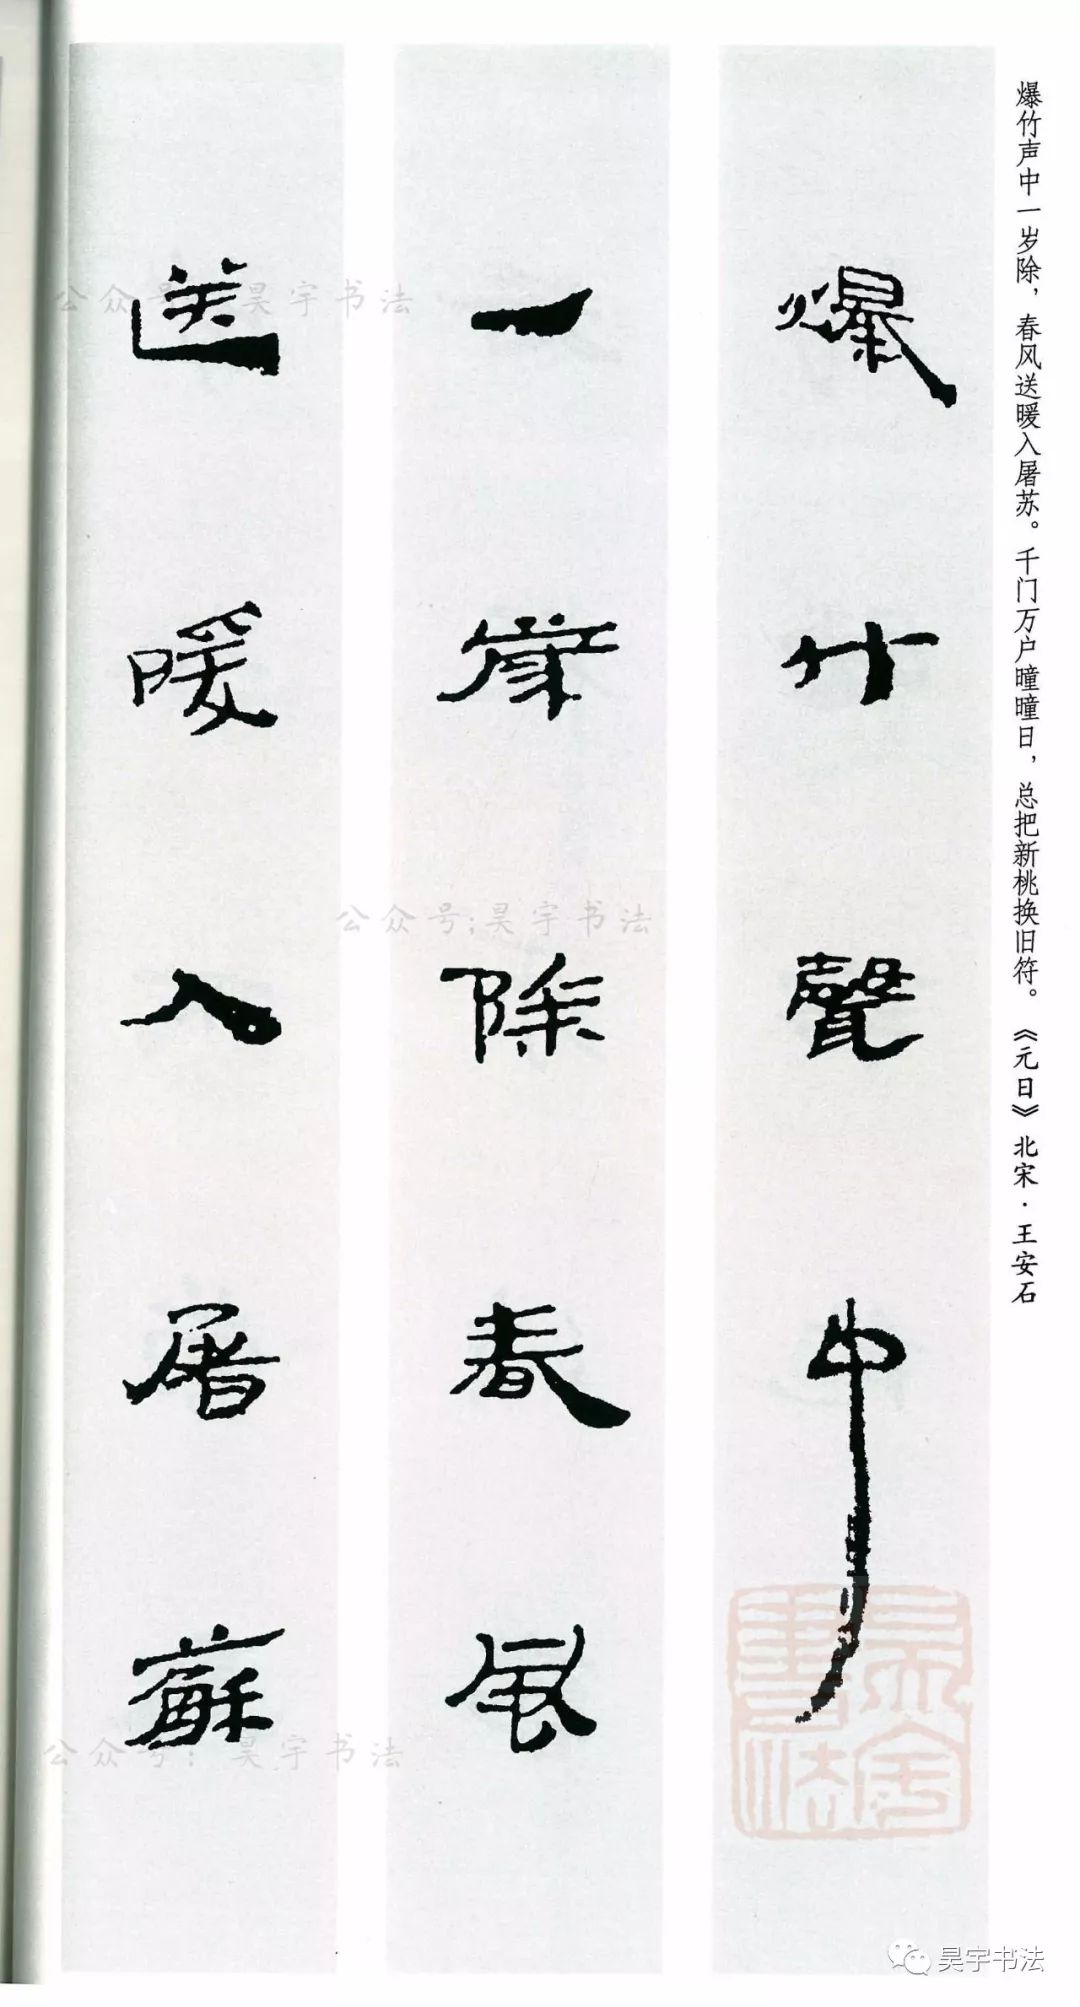 爆竹声中一岁除，春风送暖入屠苏。千门万户曈曈日，总把新桃换旧符。《元日》北宋·王安石
爆竹聲中
一歲除春風
送暖入屠蘇
公众号:昊宇书法
公众号:昊宇书法
公众号:昊宇书法
昊宇書法
昊宇书法